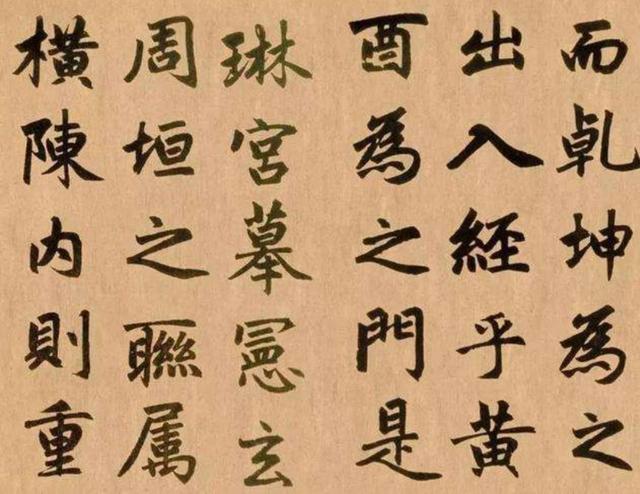 而乹坤為之
出入經乎黃
酉為之門是
琳宮摹憲玄
周垣之聯属
橫陳内則重